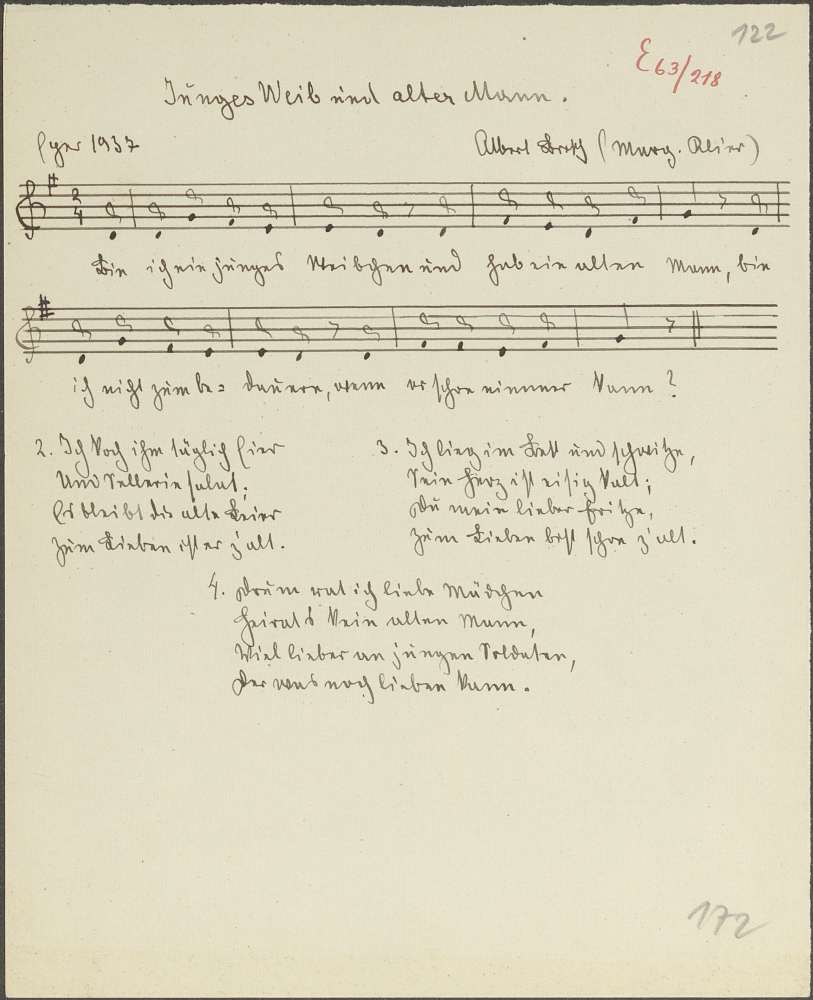 122
E 63/218
Junges Weib und alter Mann.
Eger 1937
Albert Brosch (Marg. Klier)
2/4
Bin ich ein junges Weibchen und hab ein alten Mann, bin
ich nicht zum be= dauern, wenn er schon nimmer kann?
2. Ich koch ihm täglich Eier
Und Selleriesalat;
Es bleibt die alte Leier
Zum Lieben ist er z'alt.
3. Ich lieg im Bett und schwitze,
Sein Herz ist eisig kalt;
Du mein lieber Fritze,
Zum Lieben bist schon z'alt.
4. Drum rat ich liebe Mädchen
Heirats kein alten Mann,
Viel lieber an jungen Soldaten,
Der was noch lieben kann.
172